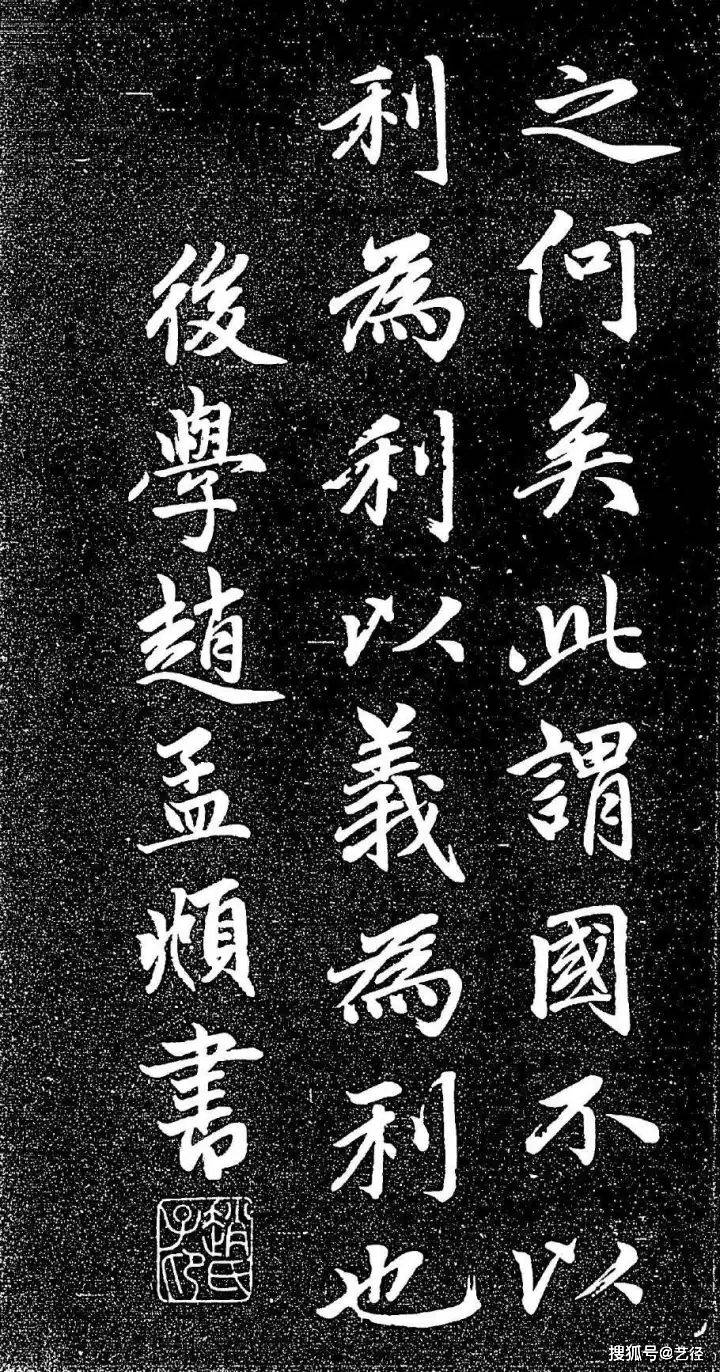 之何矣此謂國不以
利為利以義為利也
後學趙孟頫書
趙氏子昂
搜狐号@艺径